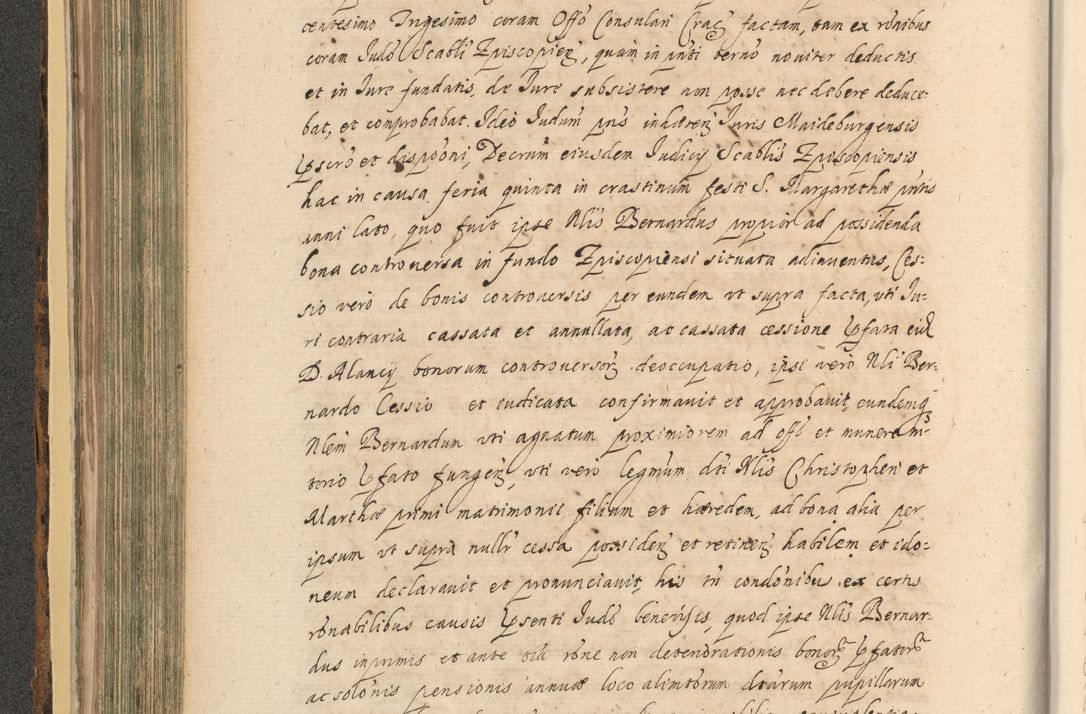 centesimo Trigesimo coram Offo Consulari Crac factam, tam ex rõnibus
coram Judõ Scabli Episcopien, quam in pnti termõ noviter deductis
et in Jure fundatis, de Jure subsistere non posse nec debere deduce-
bat, et comprobabat. Ideò Judum pns inhæren Juris Maideburgensis
pscrõ et dispõoni, Decrum eiusdem Judicij Scablis Episcopiensis
hac in causa feria quinta in crastinum festi S. Margarethæ pntis
anni lato, quo fuit ipse Nlis Bernardus propior ad possidenda
bona controversa in fundo Episcopiensi situata adinventus, Ces-
sio verò de bonis controversis per eundem vt supra facta, vti Ju-
ri contraria cassata et annullata, ac cassata cessione pfata eid
D. Alancij bonorum controversor deoccupatio, ipsi verò Nli Ber-
nardo Cessio et iudicata confirmavit et approbavit, eundemq
Nlem Bernardum vti agnatum proximiorem ad offi et munere
torio pfato fungen, vti verò legmum dti Nlis Christopheri et
Marthæ primi matrimonii filium et hæredem, ad bona alia per
ipsum vt supra nullr cessa possiden et retinen habilem et ido-
neum declaravit et pronunciavit, his tn condõnibus ex certis
rõnabilibus causis psenti Judõ benevisis, quod ipse Nlis Bernar-
dus inprimis et ante oia rõne non deteriorationis bonor pfator
ac solõnis pensionis annuæ loco alimtorum dtarum pupillarum